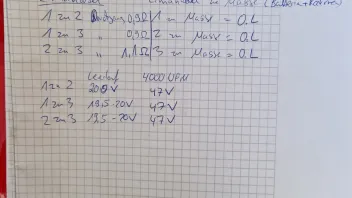 zu Masse (Batterie
1 zu 2 0,9Ω 1 zu Masse = O.L
1 zu 3 " 0,9Ω 2 zu Masse = O.L
2 zu 3 " 1,1Ω 3 zu Masse = O.L
Leerlauf 4000 UPM
1 zu 2 20V 47V
1 zu 3 19,5-20V 47V
2 zu 3 19,5-20V 47V